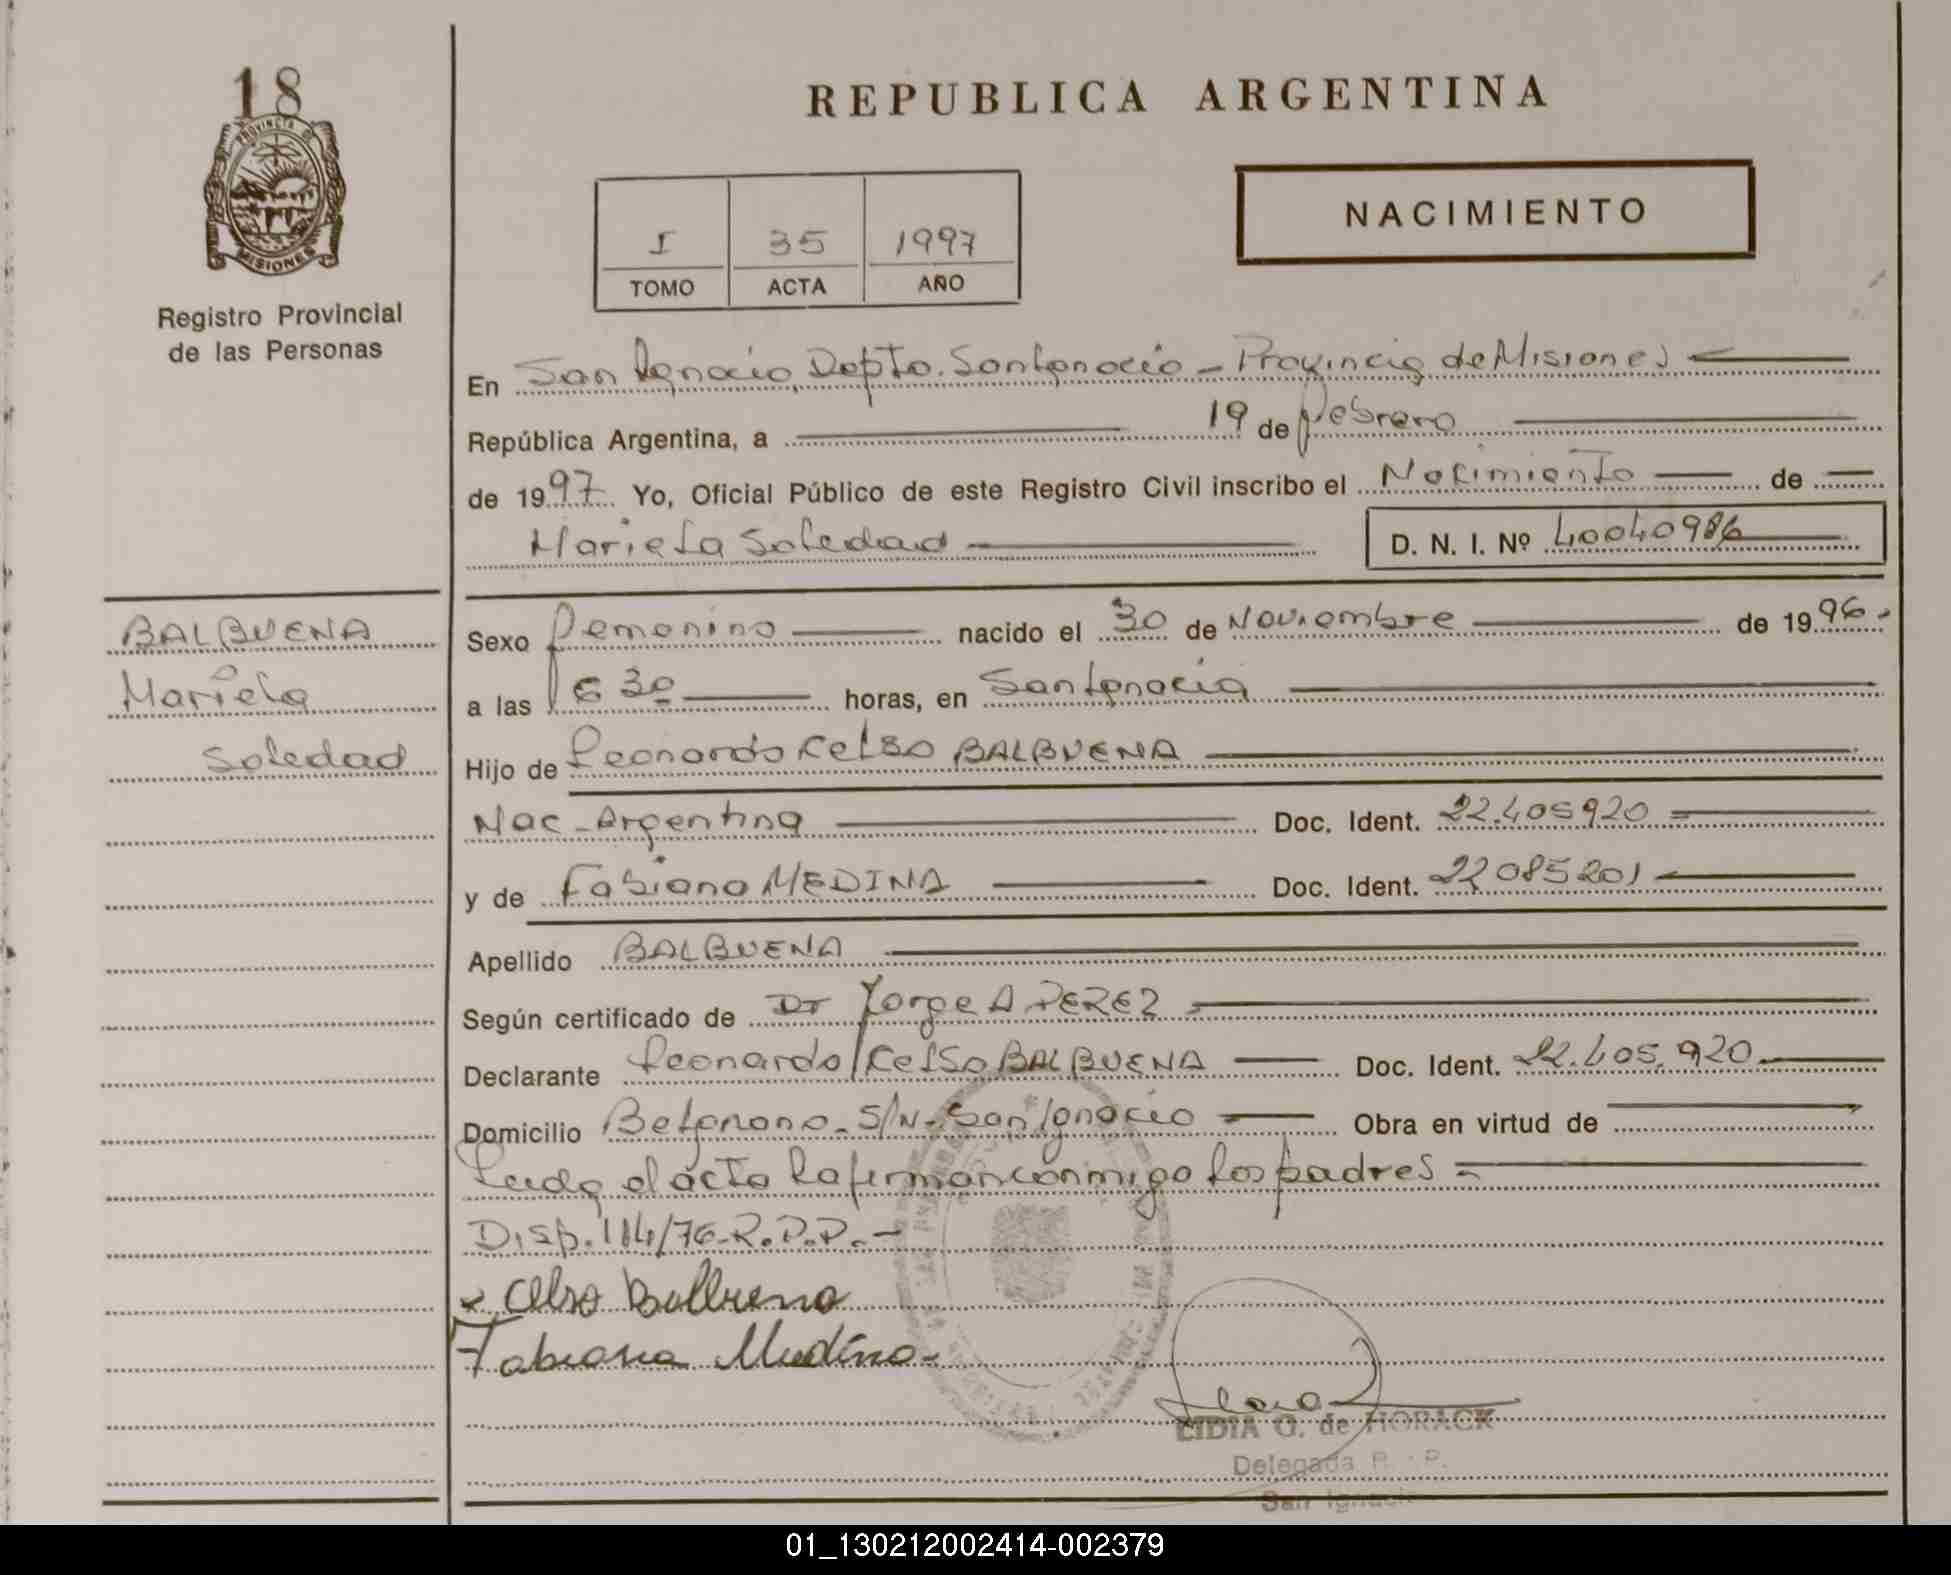 18
PROVINCIA DE
MISIONES
Registro Provincial
de las Personas
REPUBLICA ARGENTINA
I 35 1997
TOMO ACTA AÑO
NACIMIENTO
En San Ignacio, Dpto. San Ignacio - Provincia de Misiones
República Argentina, a 19 de febrero
de 1997 Yo, Oficial Público de este Registro Civil inscribo el Nacimiento de
Mariela Soledad D. N. I. Nº 40040986
BALBUENA
Mariela
Soledad
Sexo Femenino nacido el 30 de Noviembre de 1996.
a las 6 30 horas, en San Ignacio
Hijo de Leonardo Celso BALBUENA
Nac. Argentina Doc. Ident. 22.405920
y de Fabiana MEDINA Doc. Ident. 22085201
Apellido BALBUENA
Según certificado de Dr Jorge A PEREZ
Declarante Leonardo Celso BALBUENA Doc. Ident. 22.405.920
Domicilio Belgrano - S/N - San Ignacio Obra en virtud de
Leida el acta la firman conmigo los padres -
Disp. 114/76 - R.P.P. -
Celso Balbuena
Fabiana Medina -
LIDIA O. de HORACK
Delegada R. P.
San Ignacio
01_130212002414-002379